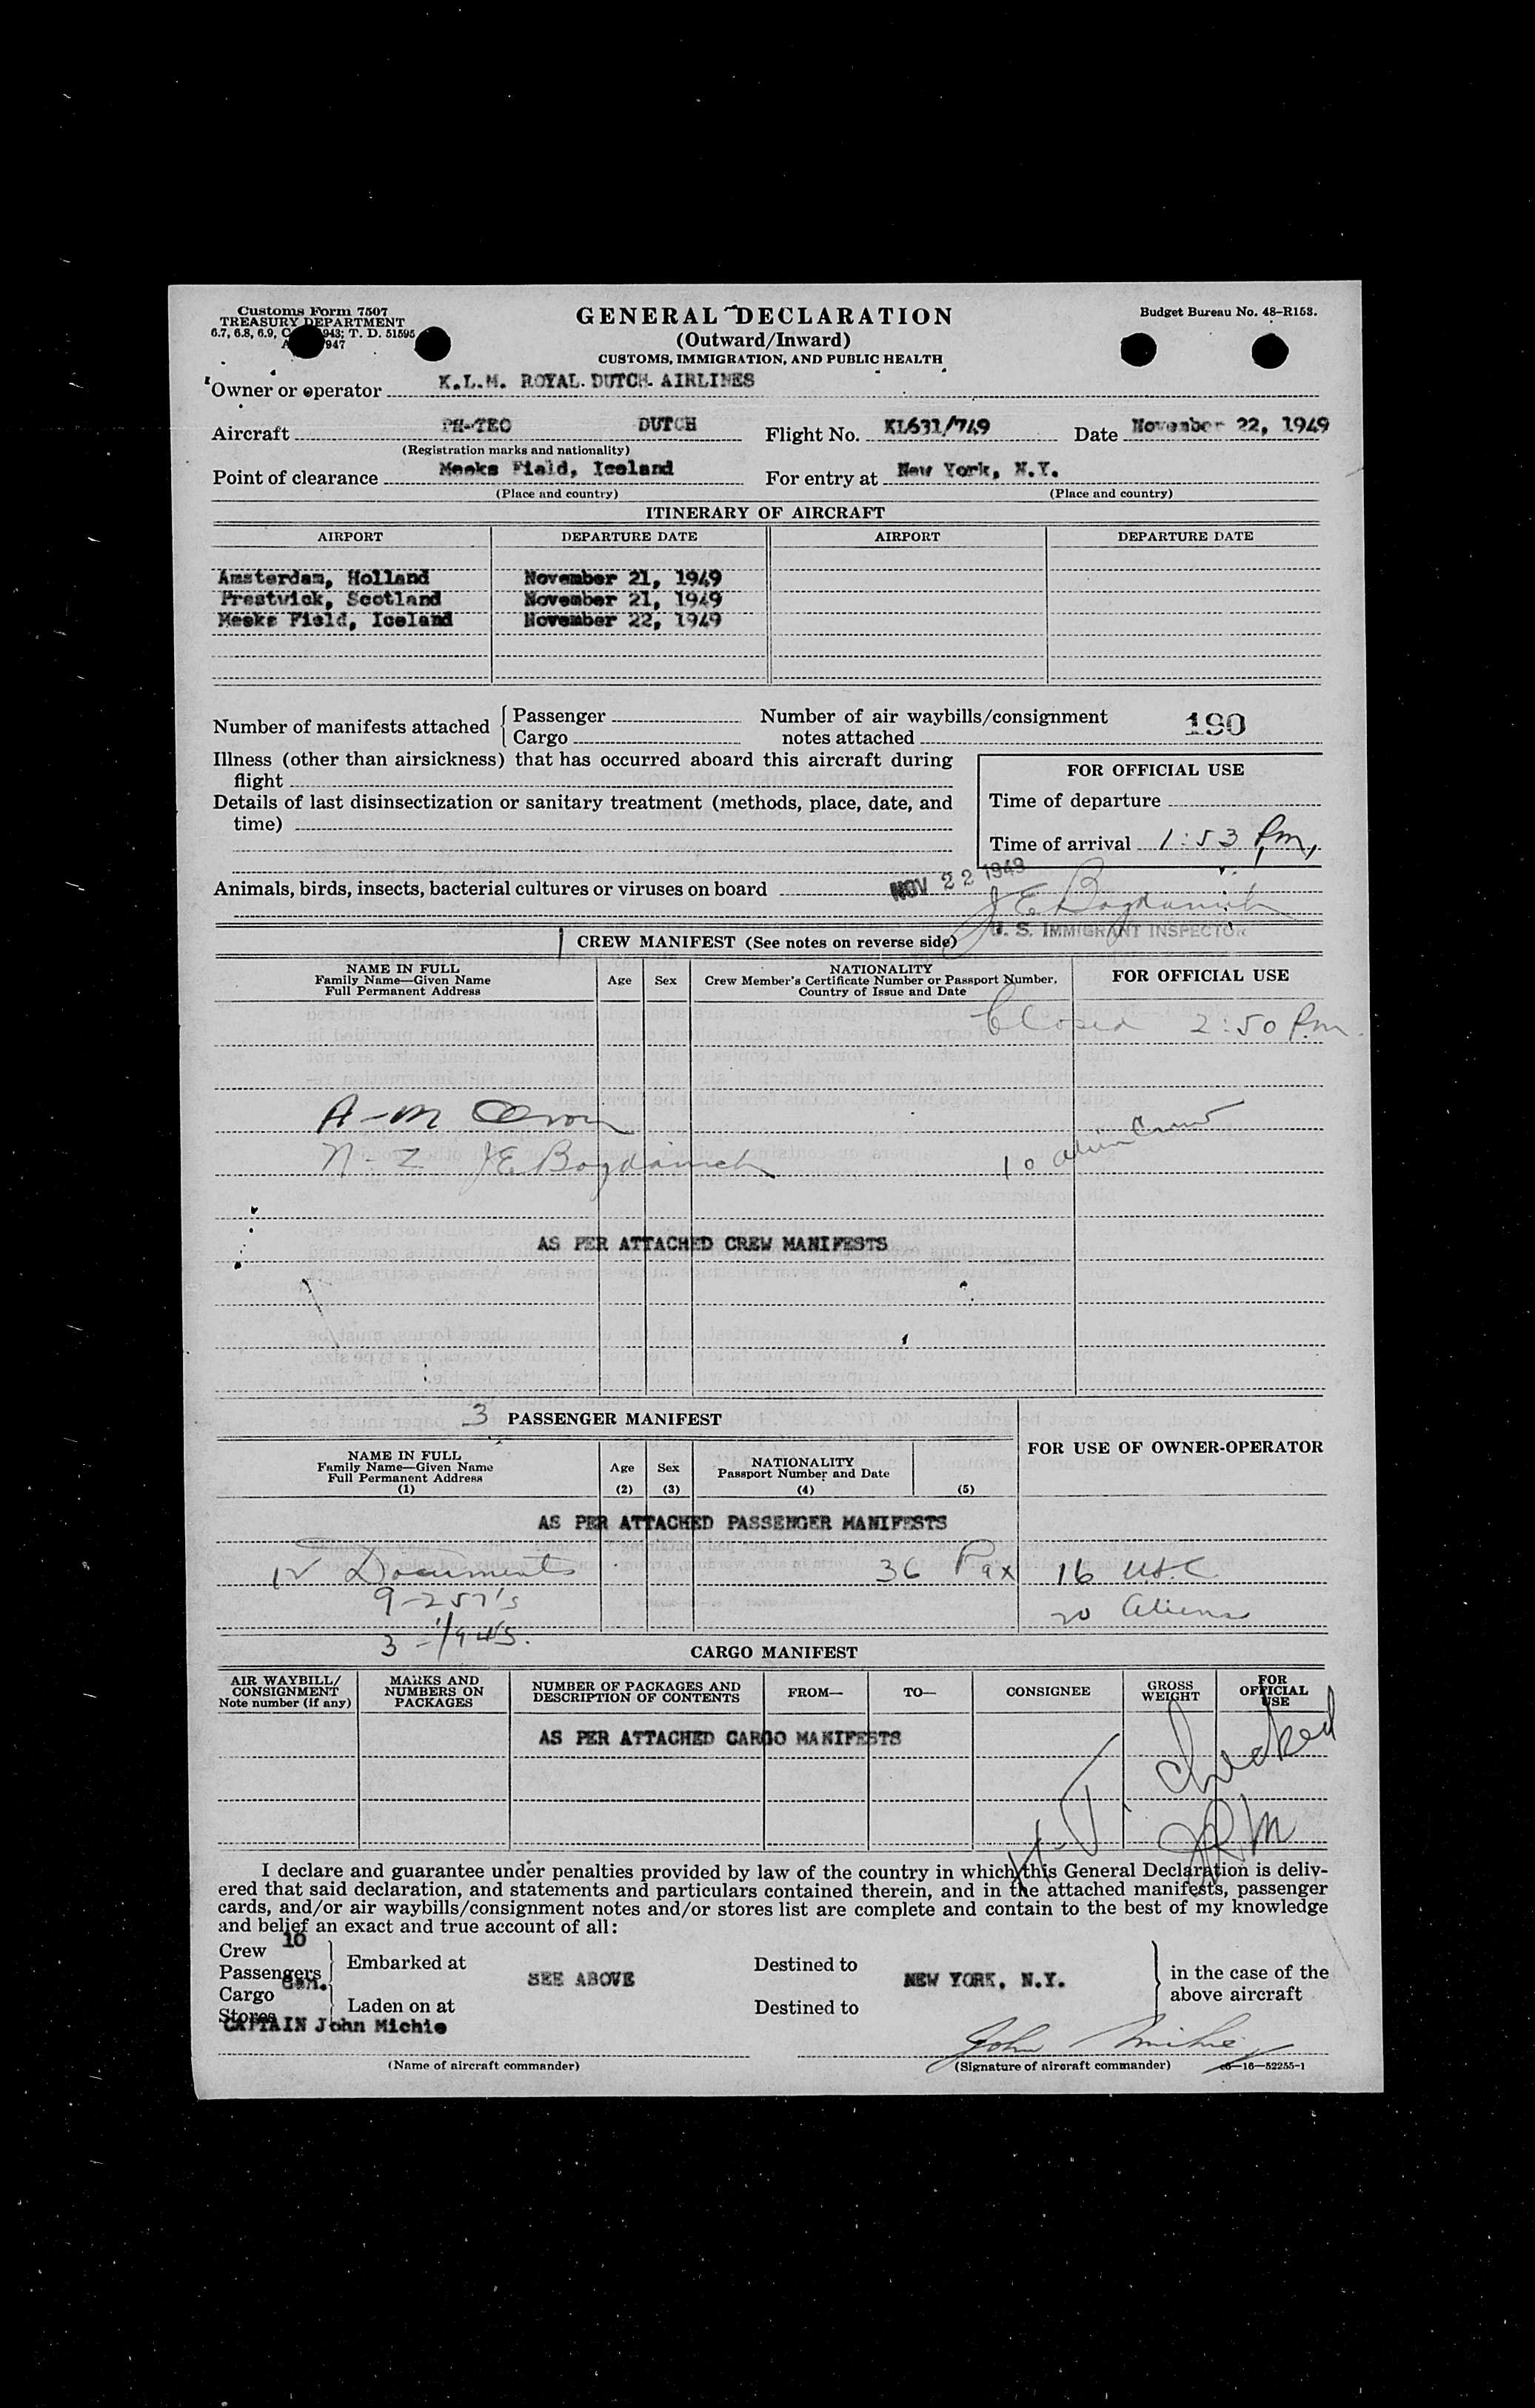 Customs Form 7507
TREASURY DEPARTMENT
6.7, 6.8, 6.9, C. 943; T. D. 51595
947
GENERAL DECLARATION
(Outward/Inward)
CUSTOMS, IMMIGRATION, AND PUBLIC HEALTH
Budget Bureau No. 48-R153.
Owner or operator K.L.M. ROYAL DUTCH AIRLINES
Aircraft PH-TEO DUTCH Flight No. KL631/749 Date November 22, 1949
(Registration marks and nationality)
Point of clearance Meeks Field, Iceland For entry at New York, N.Y.
(Place and country) (Place and country)
ITINERARY OF AIRCRAFT
AIRPORT DEPARTURE DATE AIRPORT DEPARTURE DATE
Amsterdam, Holland November 21, 1949
Prestwick, Scotland November 21, 1949
Meeks Field, Iceland November 22, 1949
Number of manifests attached { Passenger
Cargo
Number of air waybills/consignment
notes attached 190
Illness (other than airsickness) that has occurred aboard this aircraft during
flight
Details of last disinsectization or sanitary treatment (methods, place, date, and
time)
FOR OFFICIAL USE
Time of departure
Time of arrival 1:53 Pm,
Animals, birds, insects, bacterial cultures or viruses on board
NOV 22 1949
J E Bogdanich
U. S. IMMIGRANT INSPECTOR
1 CREW MANIFEST (See notes on reverse side)
NAME IN FULL
Family Name—Given Name
Full Permanent Address
Age Sex
NATIONALITY
Crew Member's Certificate Number or Passport Number,
Country of Issue and Date
FOR OFFICIAL USE
Closed 2:50 Pm
A-M
N-Z JE Bogdanich
10 alien Crew
AS PER ATTACHED CREW MANIFESTS
3 PASSENGER MANIFEST
NAME IN FULL
Family Name—Given Name
Full Permanent Address
(1)
Age
(2)
Sex
(3)
NATIONALITY
Passport Number and Date
(4) (5)
FOR USE OF OWNER-OPERATOR
AS PER ATTACHED PASSENGER MANIFESTS
12 Documents 36 Pax 16 USC
9-257's 20 Aliens
3-
CARGO MANIFEST
AIR WAYBILL/
CONSIGNMENT
Note number (if any)
MARKS AND
NUMBERS ON
PACKAGES
NUMBER OF PACKAGES AND
DESCRIPTION OF CONTENTS
FROM— TO— CONSIGNEE
GROSS
WEIGHT
FOR
OFFICIAL
USE
AS PER ATTACHED CARGO MANIFESTS
checked
I declare and guarantee under penalties provided by law of the country in which this General Declaration is deliv-
ered that said declaration, and statements and particulars contained therein, and in the attached manifests, passenger
cards, and/or air waybills/consignment notes and/or stores list are complete and contain to the best of my knowledge
and belief an exact and true account of all:
Crew 10
Passengers
Cargo
Stores
Embarked at
Laden on at
SEE ABOVE
Destined to
Destined to
NEW YORK, N.Y.
in the case of the
above aircraft
CAPTAIN John Michie
John Michie
(Name of aircraft commander) (Signature of aircraft commander) 16—52255-1